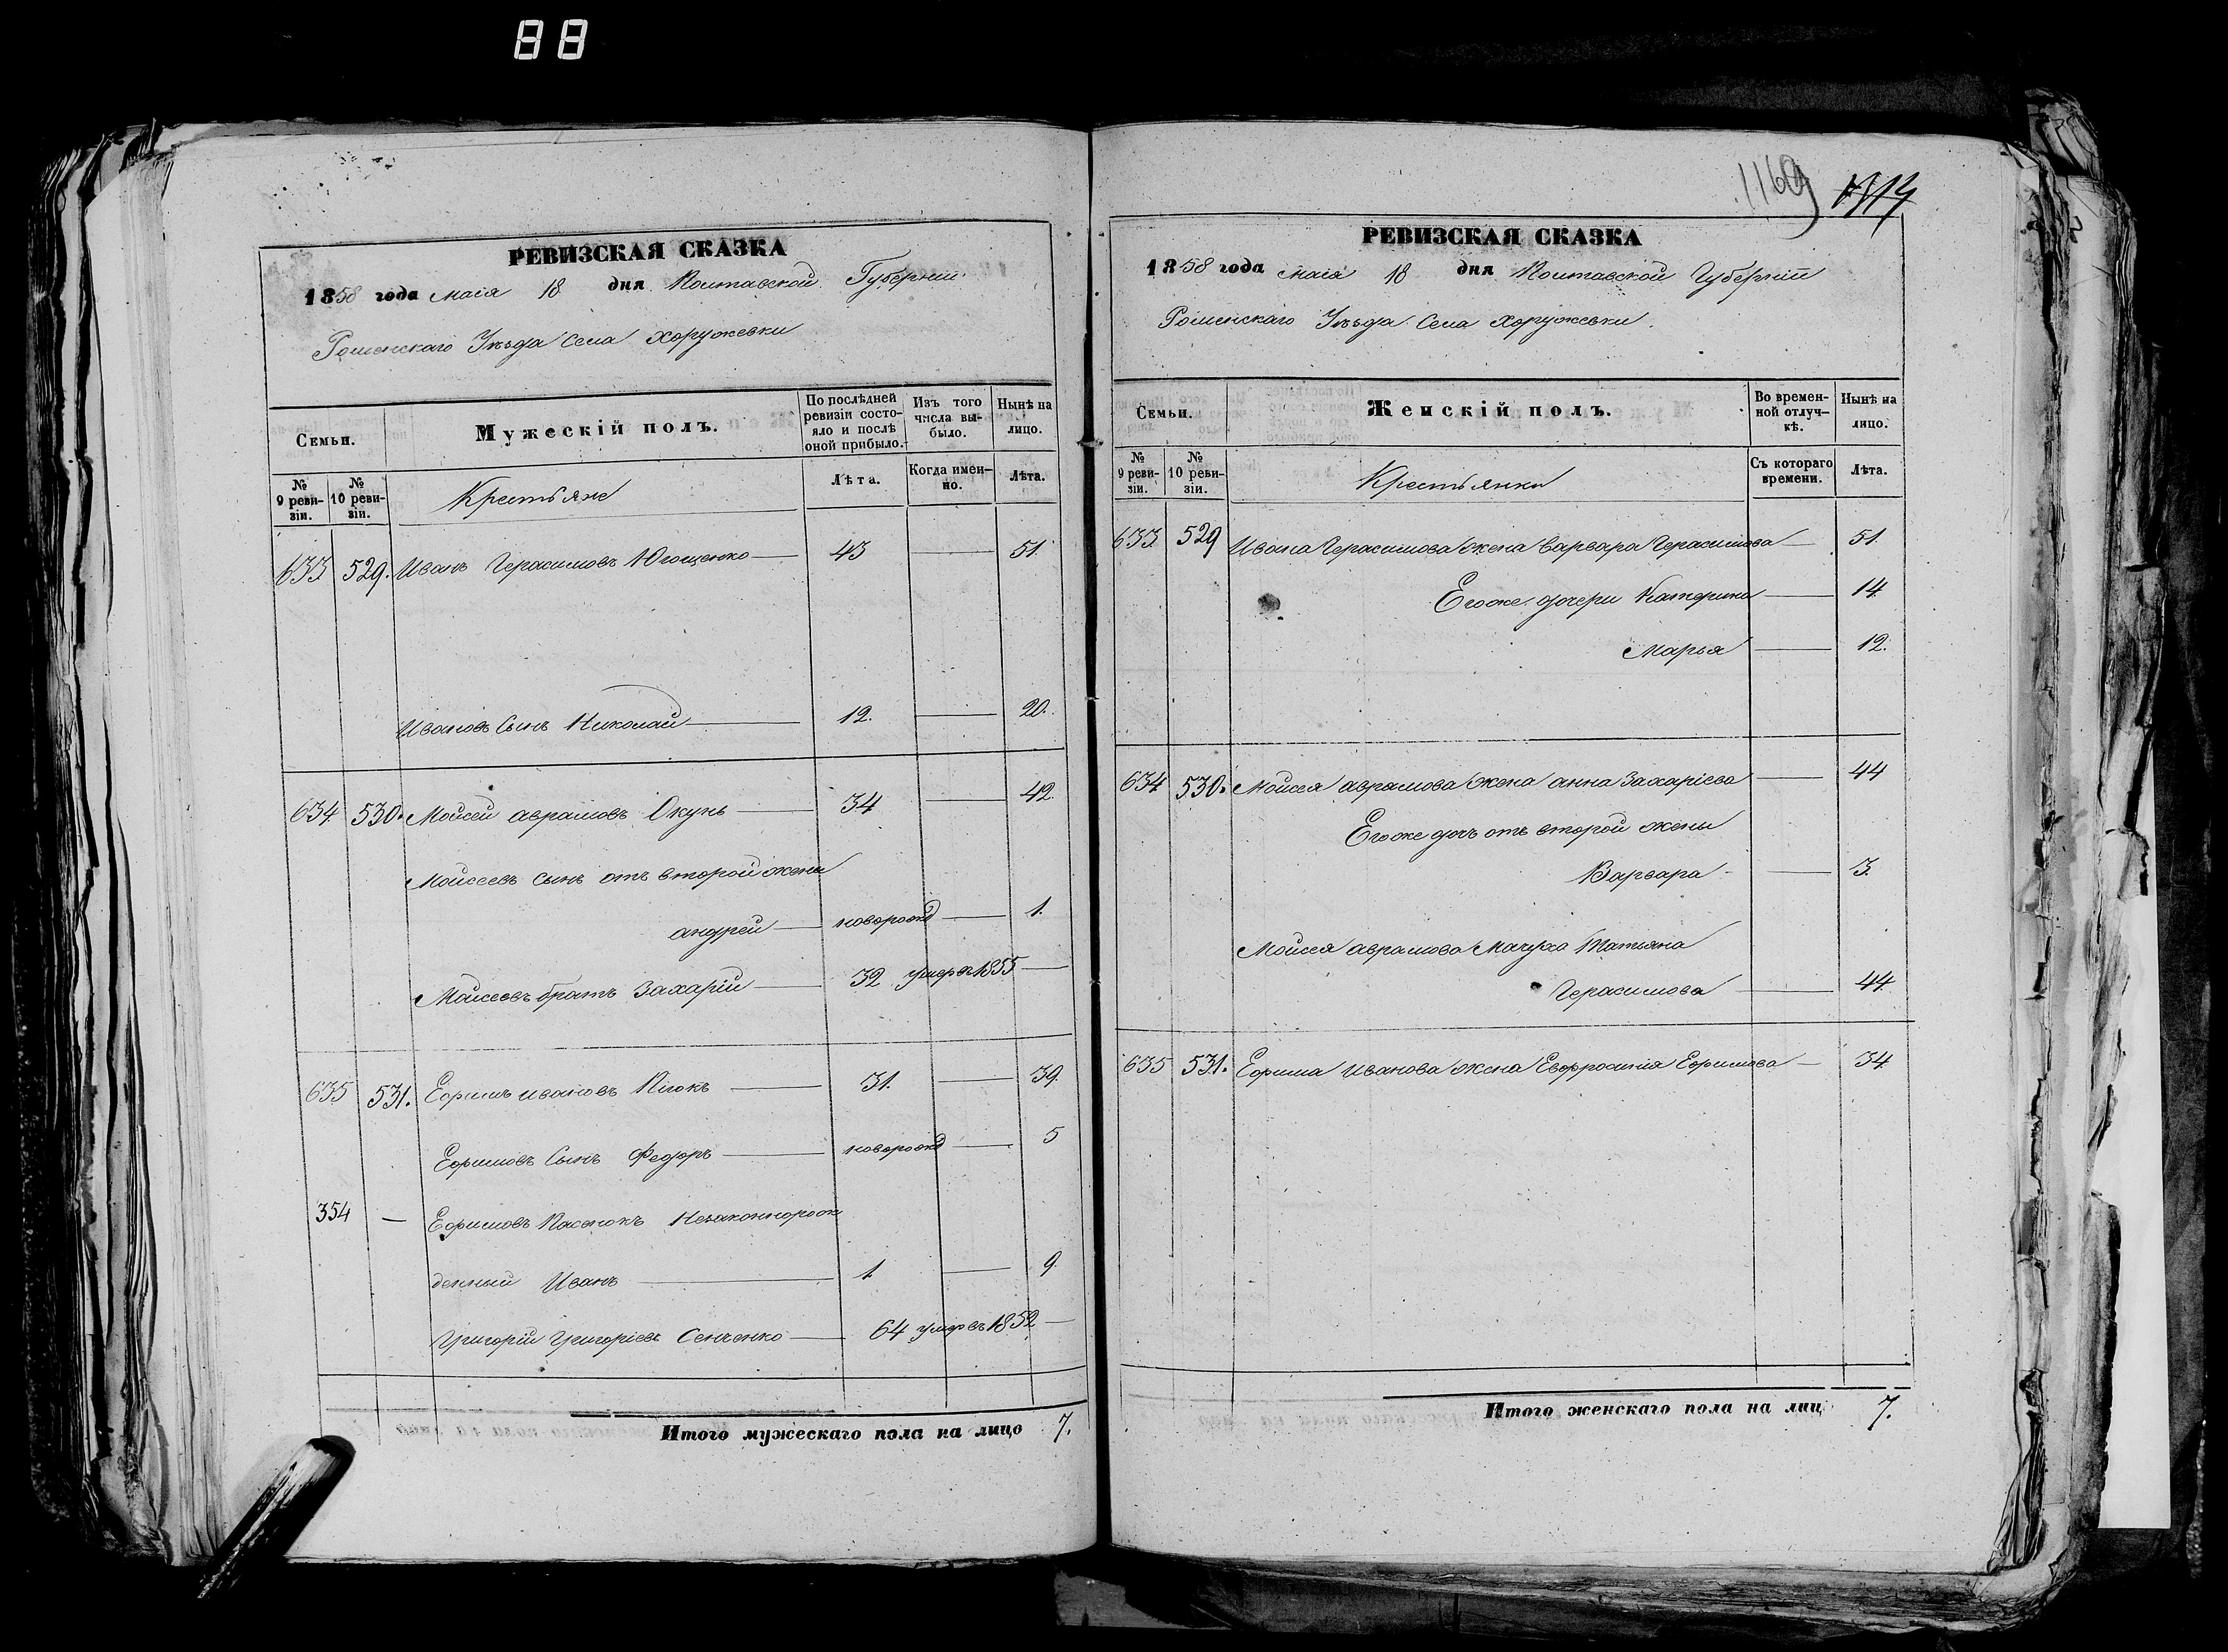 88
РЕВИЗСКАЯ СКАЗКА
1858 года маія 18 дня Полтавской Губерніи
Роменскаго Уѣзда Села Хоружевки
Семьи.
Мужескій полъ.
По послѣдней ревизіи состояло и послѣ оной прибыло.
Изъ того числа выбыло.
Нынѣ на лицо.
№ 9 ревизіи.
№ 10 ревизіи.
Крестьяне
Лѣта.
Когда именно.
Лѣта.
633 529. Иванъ Герасимовъ 43 — 51.
Ивановъ Сынъ Николай — 12. — 20.
634 530. Мойсей аврамовъ Окунь — 34 — 42.
Мойсеевъ сынъ отъ второй жены
андрей — новорожд — 1.
Мойсеевъ братъ Захарій — 32 умер въ 1855 —
635 531. Ефимъ ивановъ — 31. — 39.
Ефимовъ Сынъ Федоръ — новорожд — 5
354 — Ефимовъ Пасынокъ Незаконнорож
денный Иванъ — 1 — 9.
Григорій Григоріевъ Сенченко — 64 умер въ 1852 —
Итого мужескаго пола на лицо 7.
1169 1114
РЕВИЗСКАЯ СКАЗКА
1858 года маія 18 дня Полтавской Губерніи
Роменскаго Уѣзда Села Хоружевки.
Семьи.
Женскій полъ.
Во временной отлучкѣ.
Нынѣ на лицо.
№ 9 ревизіи.
№ 10 ревизіи.
Крестьянки
Съ котораго времени.
Лѣта.
633 529 Ивана Герасимова жена Варвара Герасимова — 51.
Егоже дочери Катерина — 14.
Марья — 12.
634 530. Мойсея аврамова жена анна Захаріева — 44
Егоже дочь отъ второй жены
Варвара — 3.
Мойсея аврамова Мачуха Татьяна
Герасимова — 44.
635 531. Ефима Иванова жена Евфросинія Ефимова — 34.
Итого женскаго пола на лиц 7.